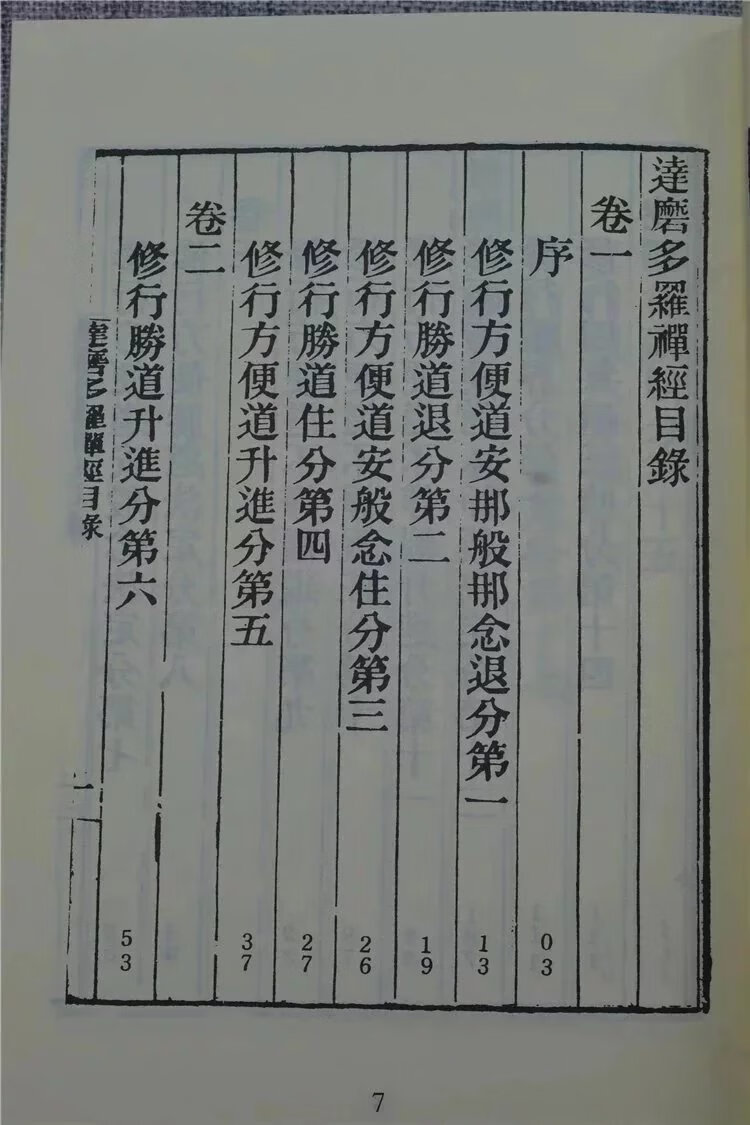 達磨多羅禪經目錄
卷一
序 03
修行方便道安那般那念退分第一 13
修行勝道退分第二 19
修行方便道安般念住分第三 26
修行勝道住分第四 27
修行方便道升進分第五 37
卷二
修行勝道升進分第六 53
達磨多羅禪經目錄
一
7